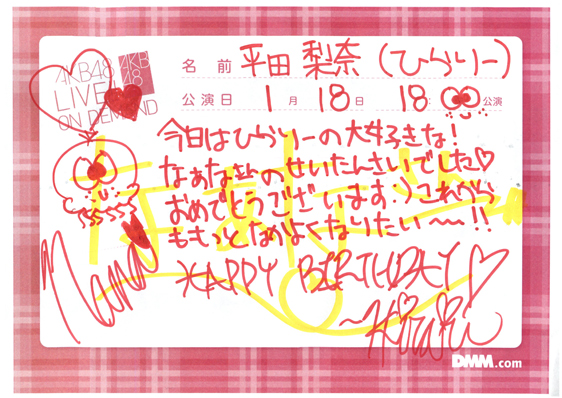 AKB48
LIVE!!
ON DEMAND
AKB
48
名前 平田 梨奈 (ひらりー)
公演日 1月18日 18: 公演
今日はひらりーの大好きな!
なぁなせいたんさいでした♡
おめでとうございます:)これから
ももっとなかよくなりたい〜!!
HAPPY BIRTHDAY♡
Nana
〜Hirari
DMM.com